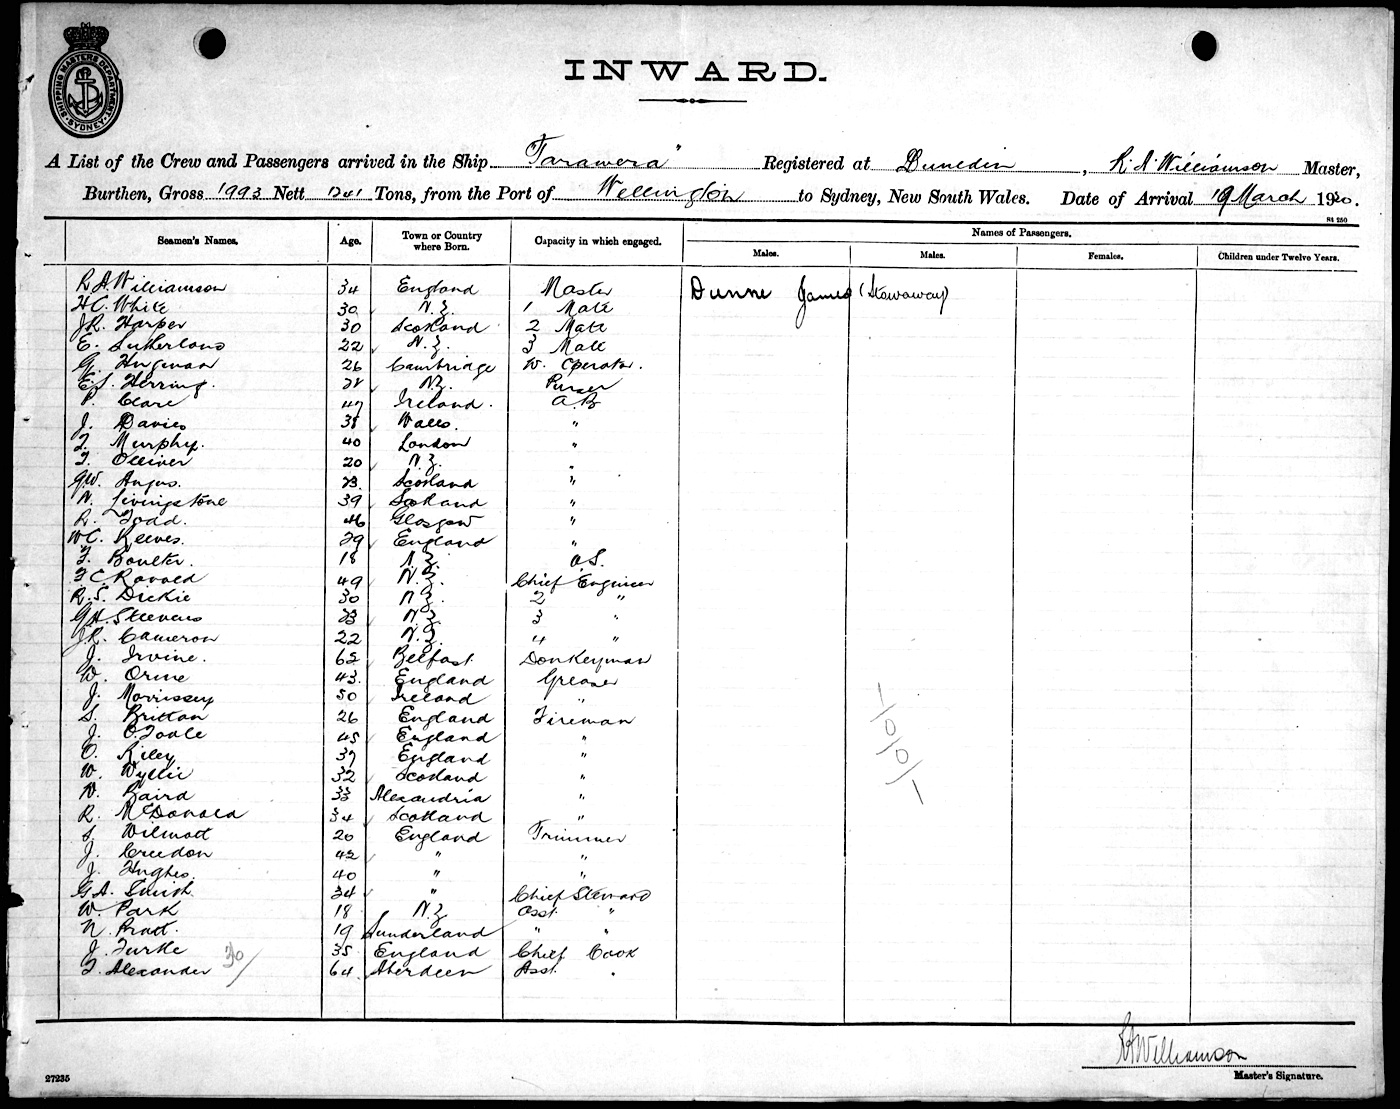 SHIPPING MASTERS DEPARTMENT
SYDNEY
INWARD.
A List of the Crew and Passengers arrived in the Ship "Tarawera" Registered at Dunedin, R. A. Williamson Master,
Burthen, Gross 1993 Nett 1241 Tons, from the Port of Wellington to Sydney, New South Wales. Date of Arrival 19 March 1920.
S4 250
Seamen's Names. Age. Town or Country where Born. Capacity in which engaged. Names of Passengers.
Males. Males. Females. Children under Twelve Years.
R A Williamson 34 England Master Dunne James (Stowaway)
H C. White 30 N.Z. 1 Mate
J R. Harper 30 Scotland 2 Mate
E. Sutherland 22 N.Z. 3 Mate
G. 26 Cambridge W. Operator.
E. S. Herring. N.Z. Purser
P. Clare 47 Ireland. A.B
J. Davies 38 Wales. "
T. Murphy. 40 London "
T. Olliver 20 N.Z. "
G.W. Angus. 23. Scotland "
N. Livingstone 39 Scotland "
R. Todd. 46 Glasgow "
W C. Reeves. 29 England "
F. Boulter. 18 N.Z. O.S.
F C Ronald 49 N.Z. Chief Engineer
R. S. Dickie 30 N.Z. 2 "
G A. Steevens 23 N.Z. 3 "
J.R. Cameron 22 N.Z. 4 "
J. Irvine. 62 Belfast. Donkeyman
W. Orme 43. England Greaser
J. Morrissey 50 Ireland "
S. Britton 26 England Fireman
J. O.Toole 45 England "
O. Riley 37 England "
W. Wyllie 32 Scotland "
N. Baird 33 Alexandria "
R. McDonald 34 Scotland "
S. Wilmott 20 England Trimmer
J. Creedon 42 " "
J. Hughes. 40 " "
G A. Smith 34 " Chief Steward
W. Park 18 N.Z Asst. "
N. Pratt. 19 Sunderland " "
J. Turtle 35 England Chief Cook
T. Alexander 64 Aberdeen Asst. "
30/
1/0/0/1
R A Williamson
Master's Signature.
27235